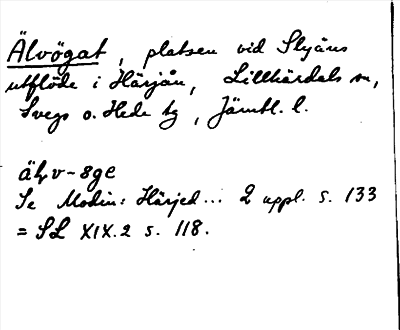 Älvögat, platsen vid Slyåns
utflöde i Härjån, Lillhärdals sn,
Svegs o. Hede tg, Jämtl. l.
älv-8ge
Se Modin: Härjed... 2 uppl. s. 133
= SL XIX.2 s. 118.